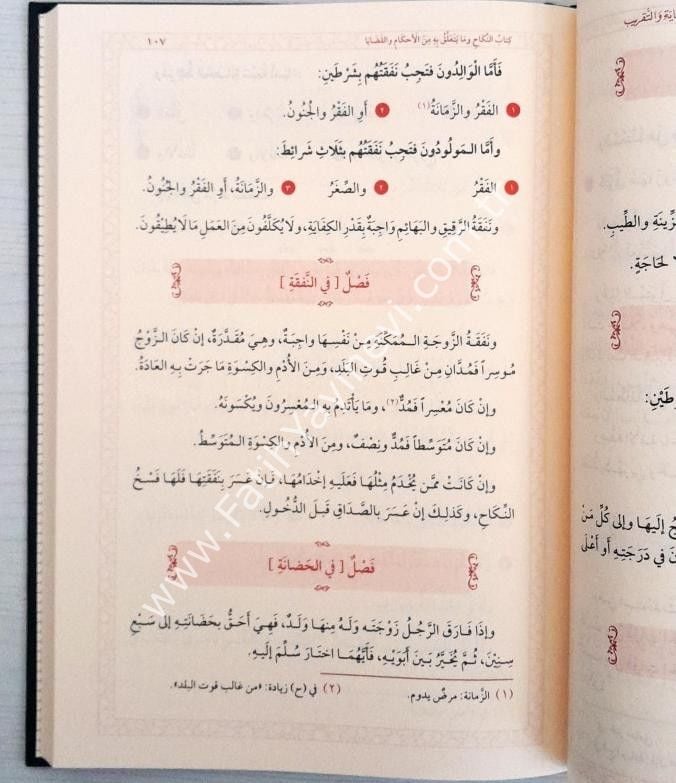 كِتابُ النِّكاحِ وما يَتعلَّقُ بِهِ مِنَ الأحكامِ والقَضايا
١٠٧
فَأَمَّا الْوَالِدُونَ فَتَجِبُ نَفَقَتُهُم بِشَرْطَينِ:
١ الفَقْرُ والزَّمَانَةُ(١)
٢ أَوِ الفَقْرُ والجُنُونُ.
وأَمَّا المَولُودُونَ فَتَجِبُ نَفَقَتُهُم بِثَلَاثِ شَرائِطَ:
١ الفَقْرُ
٢ والصِّغَرُ
٣ والزَّمَانَةُ، أَوِ الفَقْرُ والجُنُونُ.
ونَفَقَةُ الرَّقِيقِ والبَهائِمِ وَاجِبَةٌ بِقَدْرِ الكِفَايَةِ، ولَا يُكَلَّفُونَ مِنَ العَمَلِ مَا لَا يُطِيقُونَ.
فَصْلٌ [ في النَّفَقَةِ ]
ونَفَقَةُ الزَّوجَةِ المُمَكِّنَةِ مِنْ نَفْسِهَا واجِبَةٌ، وهِيَ مُقَدَّرَةٌ، إِنْ كَانَ الزَّوْجُ
مُوسِراً فَمُدَّانِ مِنْ غَالِبِ قُوتِ البَلَدِ، ومِنَ الأُدْمِ والكِسْوَةِ مَا جَرَتْ بِهِ العَادَةُ.
وإِنْ كَانَ مُعْسِراً فَمُدٌّ(٢)، ومَا يَأْتَدِمُ بِهِ المُعْسِرُونَ ويُكْسَونَهُ.
وإِنْ كَانَ مُتَوَسِّطاً فَمُدٌّ ونِصْفٌ، ومِنَ الأُدْمِ والكِسْوَةِ المُتَوَسِّطُ.
وإِنْ كَانَتْ مِمَّن يُخْدَمُ مِثْلُهَا فَعَلَيهِ إِخْدَامُهَا، فَإِنْ عَسَرَ بِنَفَقَتِهَا فَلَهَا فَسْخُ
النِّكَاحِ، وكَذَلِكَ إِنْ عَسَرَ بِالصَّدَاقِ قَبلَ الدُّخُولِ.
فَصْلٌ [ في الحَضَانَةِ ]
وإِذَا فَارَقَ الرَّجُلُ زَوْجَتَه ولَهُ مِنهَا ولَدٌ، فَهِيَ أَحَقُّ بِحَضَانَتِهِ إِلى سَبْعِ
سِنِيْنَ، ثُمَّ يُخَيَّرُ بَينَ أَبَوَيهِ، فَأَيُّهُمَا اخْتَارَ سُلِّمَ إِلَيهِ.
(١) الزَّمانة: مرضٌ يدوم.
(٢) في (ح) زيادة: «من غالب قوت البلد».
والتَّقريب
والطِّيبِ.
لحَاجَةٍ.
إِلَيهَا وإِلى كُلِّ مَنْ
في دَرَجَتِهِ أَو أَعْلَى
www.FatihYayinevi.com.tr